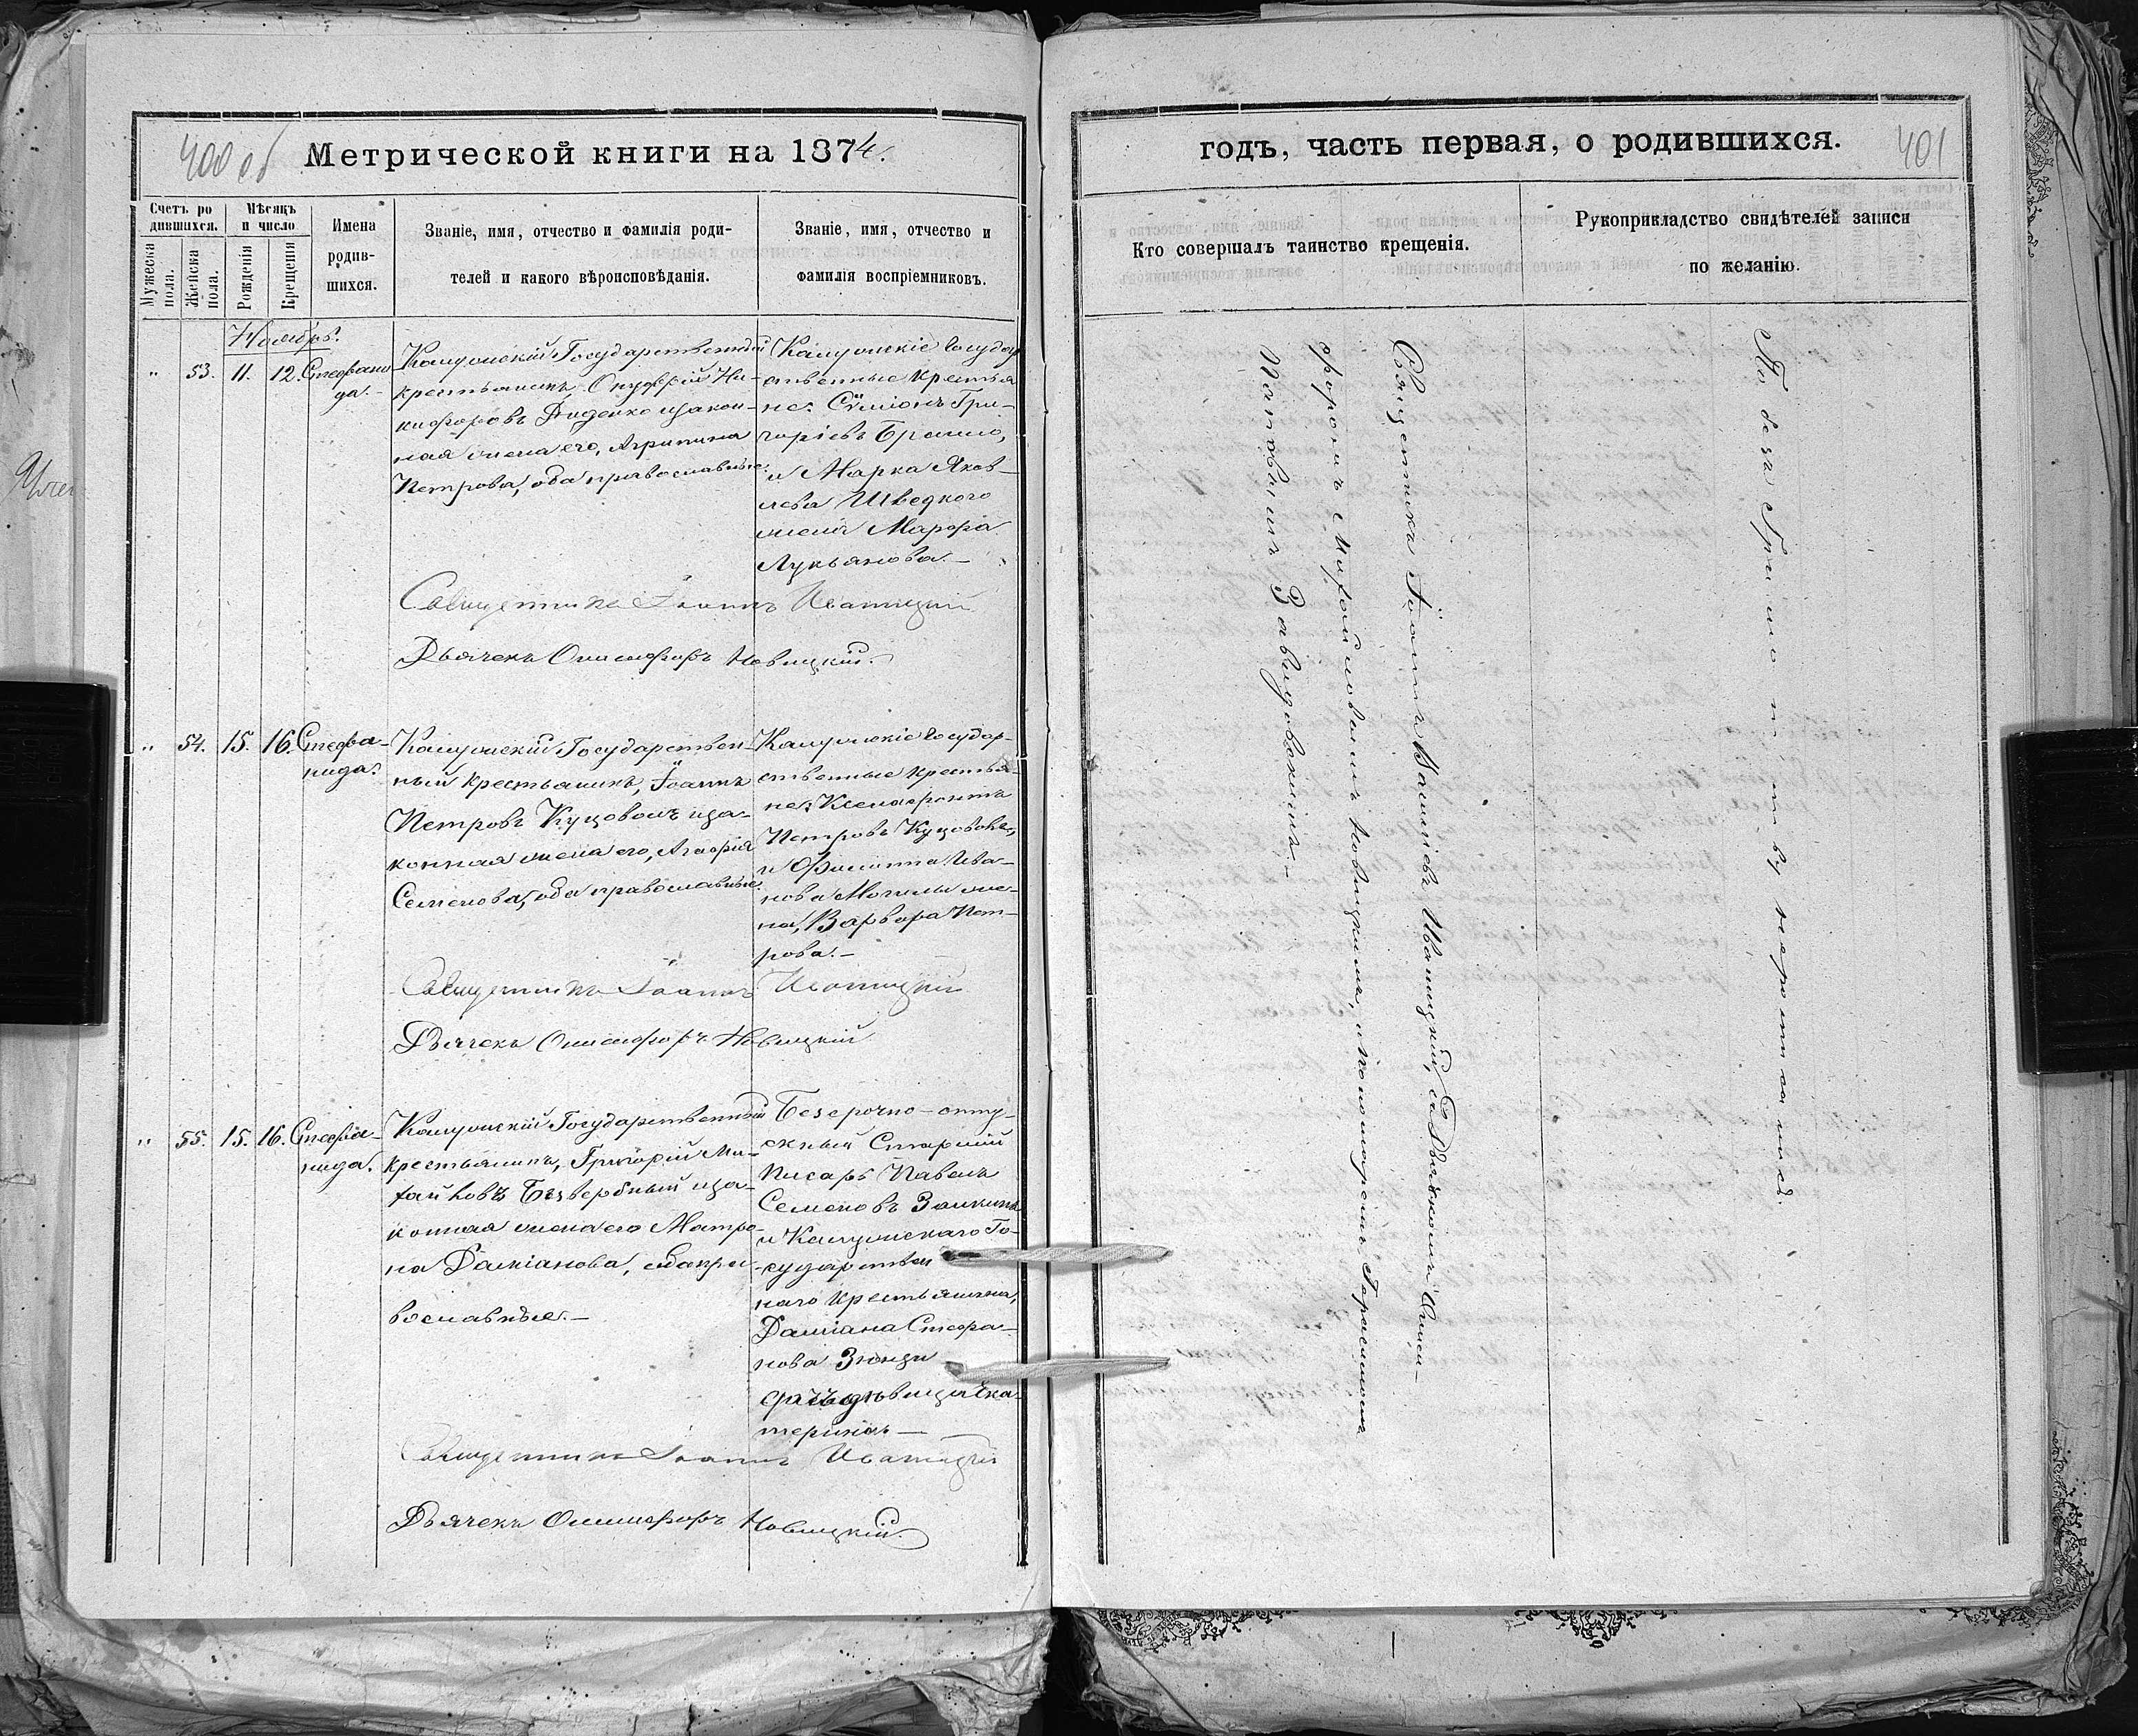 400 об
Метрической книги на 1874.
Счетъ ро
дившихся.
Мужеска
пола.
Женска
пола.
Мѣсяцъ
и число
Рожденія
Крещенія
Имена
родив-
шихся.
Званіе, имя, отчество и фамилія роди-
телей и какого вѣроисповѣданія.
Званіе, имя, отчество и
фамилія воспріемниковъ.
Ноябрь.
" 53. 11. 12. Стефани
да.-
Государственный
крестьянинъ, Онуфрій Ни-
кифоровъ Диденко изакон-
ная жена его, Агрипина
Петрова, оба православные.
Государ
ственные крестья
не: Сѵмеонъ Гри-
горіевъ
и Марка Яков-
лева Шведкого
жена Марфа
Лукьянова.-
Священникъ Іоаннъ Иваницкій
Дьячекъ Онисифоръ Новицкій.
" 54. 15. 16. Стефа-
нида.
Государствен-
ный крестьянинъ, Іоаннъ
Петровъ Куцоволъ иза-
конная жена его, Агафія
Семенова, оба православные.
Государ-
ственные крестья-
не: Ксенофонтъ
Петровъ Куцоволъ,
и Филиппа Ива-
нова Могилы же-
на, Варвара Пет-
рова.-
Священникъ Іоаннъ Иваницкій
Дьячекъ Онисифоръ Новицкій
" 55. 15. 16. Стефа-
нида.
Государственный
крестьянинъ, Григорій Ми-
хайловъ Безвербный иза-
конная жена его Матро-
на Даміанова, оба пра-
вославные.-
Безсрочно-отпу-
скный Старшій
Писарь Павелъ
Семеновъ Заикинъ
и Го-
сударствен
наго крестьянина,
Даміана Стефа-
нова Зюнзи
дѣвица Ека-
терина.-
Священникъ Іоаннъ Иваницкій
Дьячекъ Онисифоръ Новицкій.
годъ, часть первая, о родившихся.
401
Кто совершалъ таинство крещенія.
Рукоприкладство свидѣтелей записи
по желанію.
Священникъ Іоаннъ Иваницкій, съ Дьячкомъ Ониси-
форомъ Михайловымъ Новицкимъ, и пономаремъ Герасимомъ